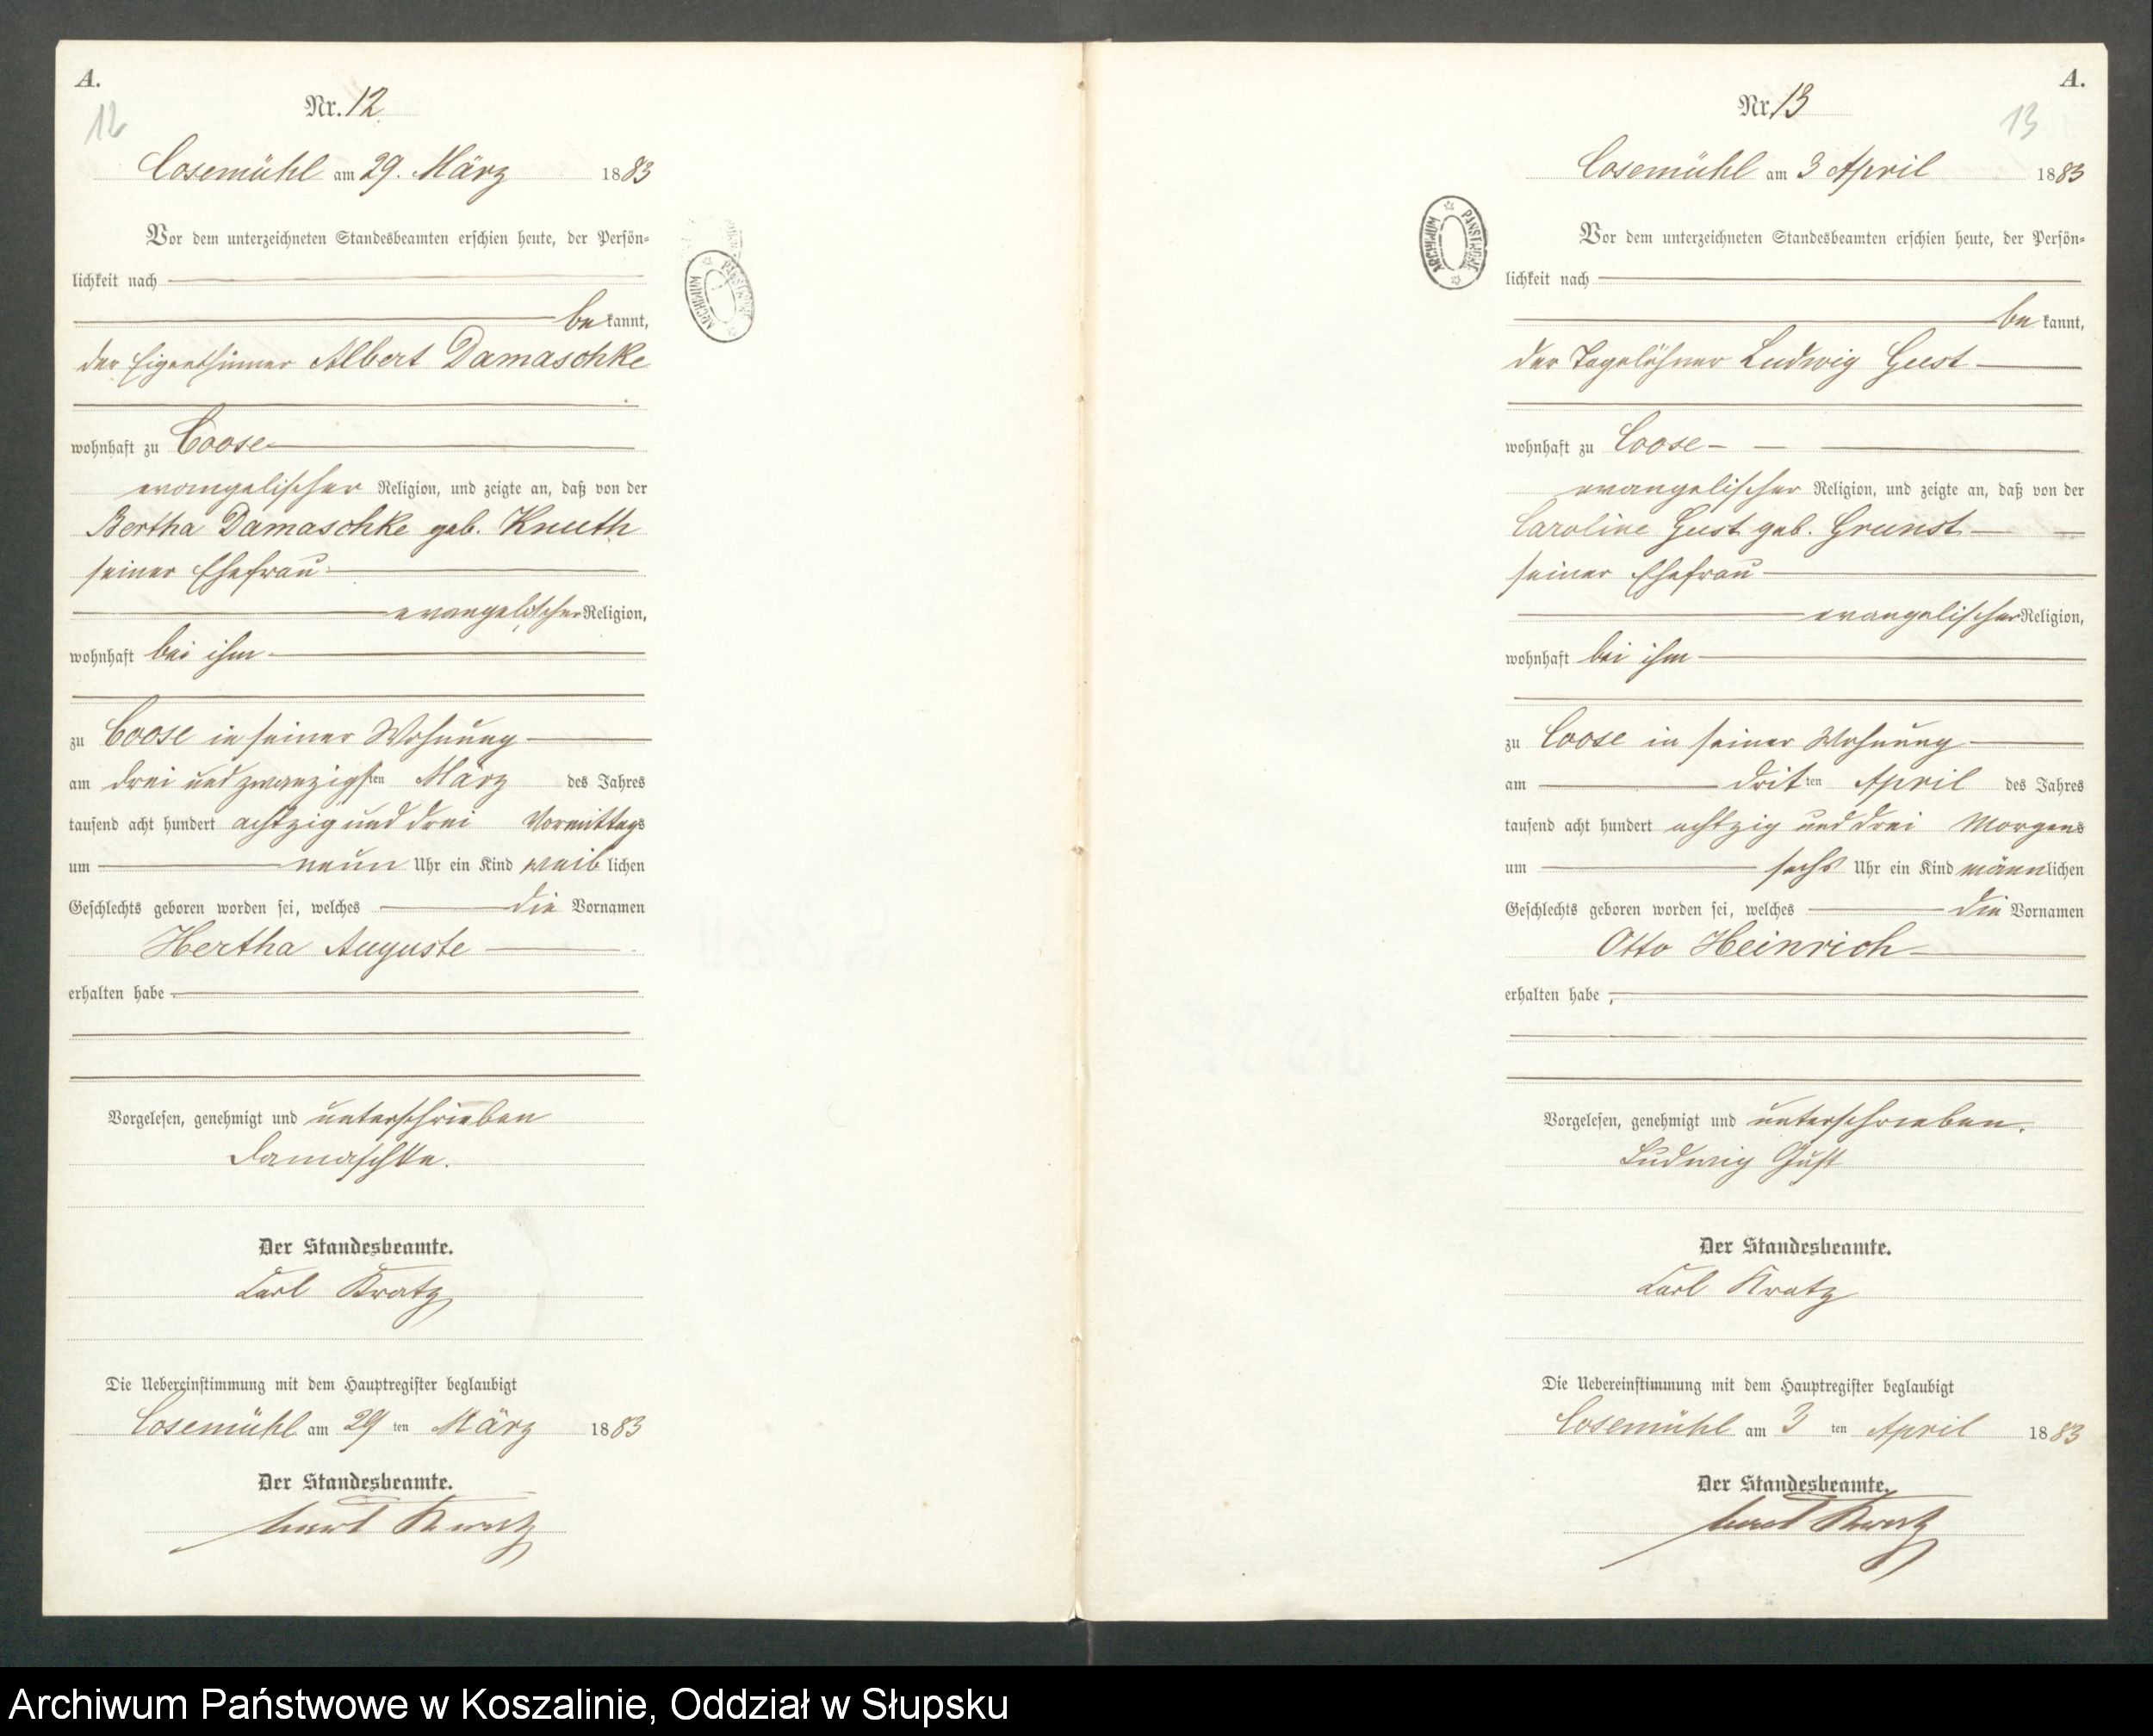 A.
12
Nr. 12
Cosemühl am 29. März 1883
Vor dem unterzeichneten Standesbeamten erschien heute, der Persön-
lichkeit nach
bekannt,
der Eigenthümer Albert Damaschke
wohnhaft zu Coose
evangelischer Religion, und zeigte an, daß von der
Bertha Damaschke geb. Knuth
seiner Ehefrau
evangelischer Religion,
wohnhaft bei ihm
zu Coose in seiner Wohnung
am drei und zwanzigsten März des Jahres
tausend acht hundert achtzig und drei Vormittags
um neun Uhr ein Kind weiblichen
Geschlechts geboren worden sei, welches die Vornamen
Hertha Auguste
erhalten habe
Vorgelesen, genehmigt und unterschrieben
Damaschke.
Der Standesbeamte.
Carl Kratz
Die Uebereinstimmung mit dem Hauptregister beglaubigt
Cosemühl am 29 ten März 1883
Der Standesbeamte.
Carl Kratz
ARCHIWUM PAŃSTWOWE
A.
13
Nr. 13
Cosemühl am 3 April 1883
ARCHIWUM PAŃSTWOWE
Vor dem unterzeichneten Standesbeamten erschien heute, der Persön-
lichkeit nach
bekannt,
der Tagelöhner Ludwig Gust
wohnhaft zu Coose
evangelischer Religion, und zeigte an, daß von der
Caroline Gust geb. Grunst
seiner Ehefrau
evangelischer Religion,
wohnhaft bei ihm
zu Coose in seiner Wohnung
am dritten April des Jahres
tausend acht hundert achtzig und drei Morgens
um sechs Uhr ein Kind männlichen
Geschlechts geboren worden sei, welches die Vornamen
Otto Heinrich
erhalten habe,
Vorgelesen, genehmigt und unterschrieben.
Ludwig Gust
Der Standesbeamte.
Carl Kratz
Die Uebereinstimmung mit dem Hauptregister beglaubigt
Cosemühl am 3 ten April 1883
Der Standesbeamte.
Carl Kratz
Archiwum Państwowe w Koszalinie, Oddział w Słupsku